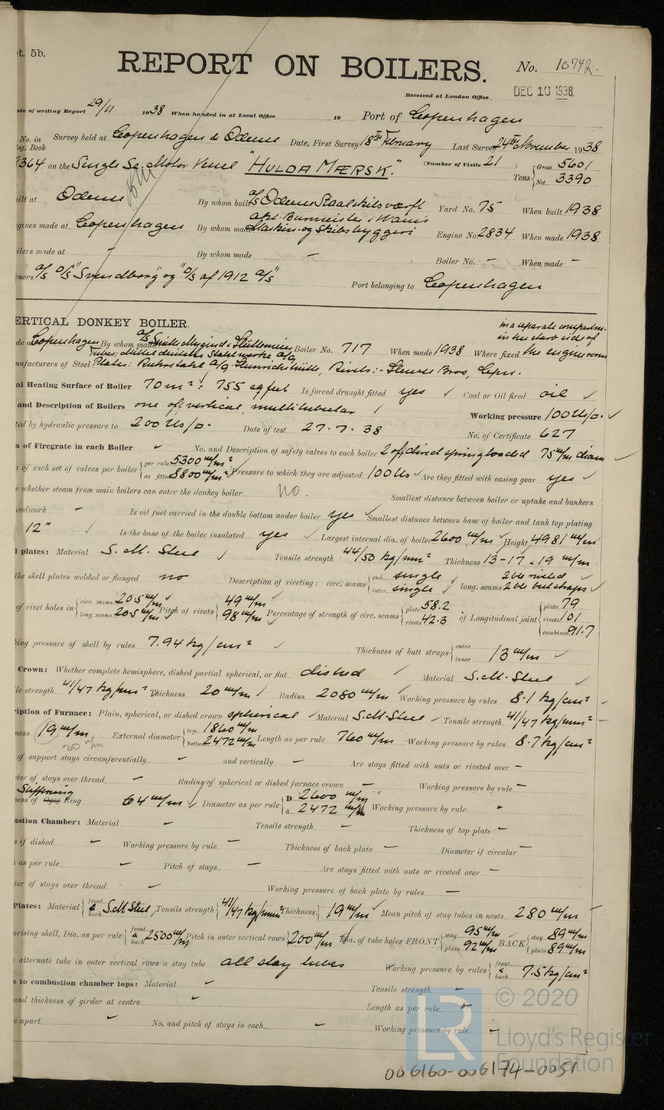 t. 5b.
REPORT ON BOILERS.
No. 10742.
Received at London Office
DEC 10 1938
ate of writing Report 29/11 1938 When handed in at Local Office 19 Port of Copenhagen
No. in Survey held at Copenhagen & Odense Date, First Survey 18th February Last Survey 24th November 1938
eg. Book
364 on the Single Sc. Motor Vessel "HULDA MÆRSK". (Number of Visits 21 Tons Gross 5601
Net 3390
uilt at Odense By whom built A/S Odense Staalskibsværft Yard No. 75 When built 1938
ngines made at Copenhagen By whom made Akt. Burmeister & Wain's Maskin- og Skibsbyggeri Engine No. 2834 When made 1938
oilers made at - By whom made - Boiler No. - When made -
ners A/S D/S "Svendborg" og D/S af 1912 A/S Port belonging to Copenhagen
ERTICAL DONKEY BOILER.
in a separate compartm. in the stard side of the engine room
de at Copenhagen By whom made Boiler No. 717 When made 1938 Where fixed
nufacturers of Steel
al Heating Surface of Boiler 70 m² : 755 sq feet Is forced draught fitted yes Coal or Oil fired oil
and Description of Boilers one off, vertical, multitubular Working pressure 100 lbs/□"
ted by hydraulic pressure to 200 lbs/□" Date of test 27.7.38 No. of Certificate 627
a of Firegrate in each Boiler - No. and Description of safety valves to each boiler 2 off direct spring loaded 75 m/m diam
of each set of valves per boiler per rule 5300 m/m² as fitted 8800 m/m² Pressure to which they are adjusted 100 lbs Are they fitted with easing gear yes
e whether steam from main boilers can enter the donkey boiler no. Smallest distance between boiler or uptake and bunkers
oodwork - Is oil fuel carried in the double bottom under boiler yes Smallest distance between base of boiler and tank top plating
12" Is the base of the boiler insulated yes Largest internal dia. of boiler 2600 m/m Height 4981 m/m
l plates: Material S.M. Steel Tensile strength 44/50 kg/mm² Thickness 13-17 & 19 m/m
the shell plates welded or flanged no Description of riveting: circ. seams end single inter. single long. seams
of rivet holes in circ. seams 20.5 m/m long. seams 20.5 m/m Pitch of rivets 49 m/m 98 m/m Percentage of strength of circ. seams plate 58.2 rivets 42.3 of Longitudinal joint plate 79 rivets 101 combined 91.7
ing pressure of shell by rules 7.94 kg/cm² Thickness of butt straps outer inner 13 m/m
Crown: Whether complete hemisphere, dished partial spherical, or flat dished Material S.M. Steel
le strength 41/47 kg/mm² Thickness 20 m/m Radius 2080 m/m Working pressure by rules 8.1 kg/cm²
ription of Furnace: Plain, spherical, or dished crown spherical Material S.M. Steel Tensile strength 41/47 kg/mm²
ness 19 m/m External diameter top 1860 m/m bottom 2472 m/m Length as per rule 760 m/m Working pressure by rules 8.7 kg/cm²
20 m/m
of support stays circumferentially - and vertically - Are stays fitted with nuts or riveted over -
ter of stays over thread - Radius of spherical or dished furnace crown - Working pressure by rule -
Stiffening
ness of Ogee Ring 64 m/m Diameter as per rule D 2600 m/m d 2472 m/m Working pressure by rule -
ustion Chamber: Material - Tensile strength - Thickness of top plate -
s if dished - Working pressure by rule - Thickness of back plate - Diameter if circular -
h as per rule - Pitch of stays - Are stays fitted with nuts or riveted over -
er of stays over thread - Working pressure of back plate by rules -
Plates: Material front & back S.M. Steel Tensile strength 41/47 kg/mm² Thickness 19 m/m Mean pitch of stay tubes in nests 280 m/m
orising shell, Dia. as per rule front & back 2500 m/m Pitch in outer vertical rows 200 m/m Dia. of tube holes FRONT stay 95 m/m plain 92 m/m BACK stay 89 m/m plain 89 m/m
alternate tube in outer vertical rows a stay tube all stay tubes Working pressure by rules front & back 7.5 kg/cm²
s to combustion chamber tops: Material - Tensile strength -
and thickness of girder at centre - Length as per rule -
e apart - No. and pitch of stays in each - Working pressure by rule -
© 2020
LR
Lloyd's Register
Foundation
006160-006174-0051